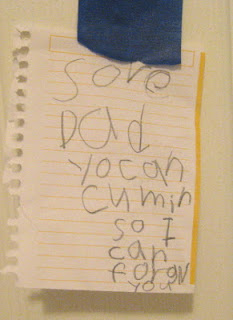 Sore
Dad
yo can
cumin
so I
can
forgav
you